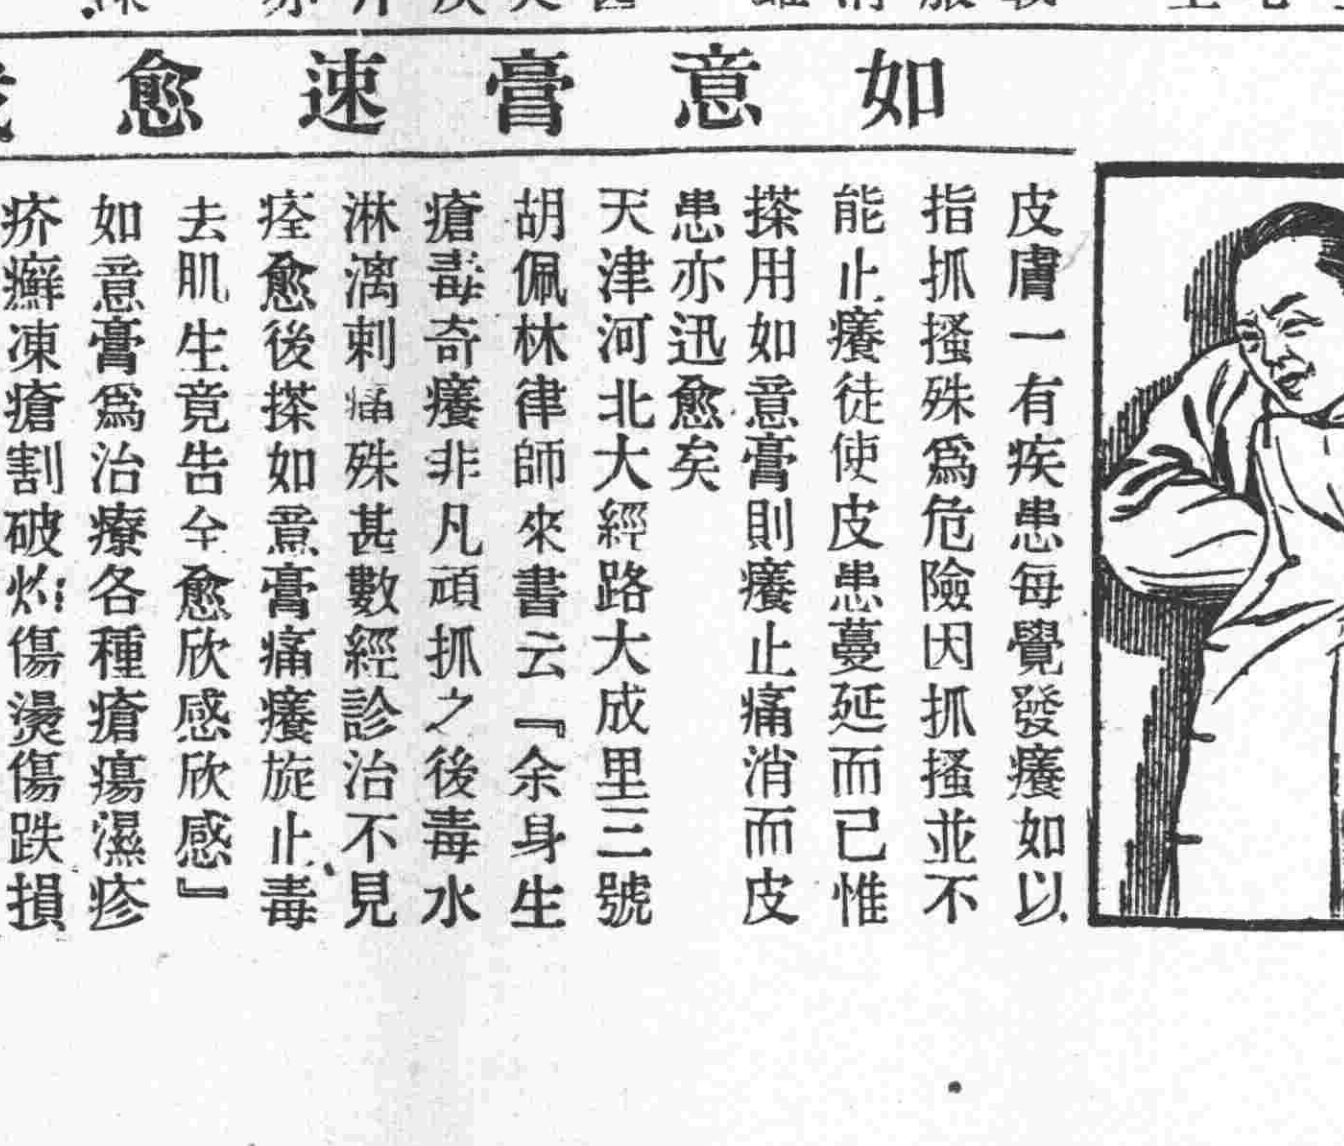 如意膏速愈
皮膚一有疾患每覺發癢如以
指抓搔殊爲危險因抓搔並不
能止癢徒使皮患蔓延而已惟
搽用如意膏則癢止痛消而皮
患亦迅愈矣
天津河北大經路大成里三號
胡佩林律師來書云『余身生
瘡毒奇癢非凡頑抓之後毒水
淋漓刺痛殊甚數經診治不見
痊愈後搽如意膏痛癢旋止毒
去肌生竟告全愈欣感欣感』
如意膏爲治療各種瘡瘍濕疹
疥癬凍瘡割破灼傷燙傷跌損